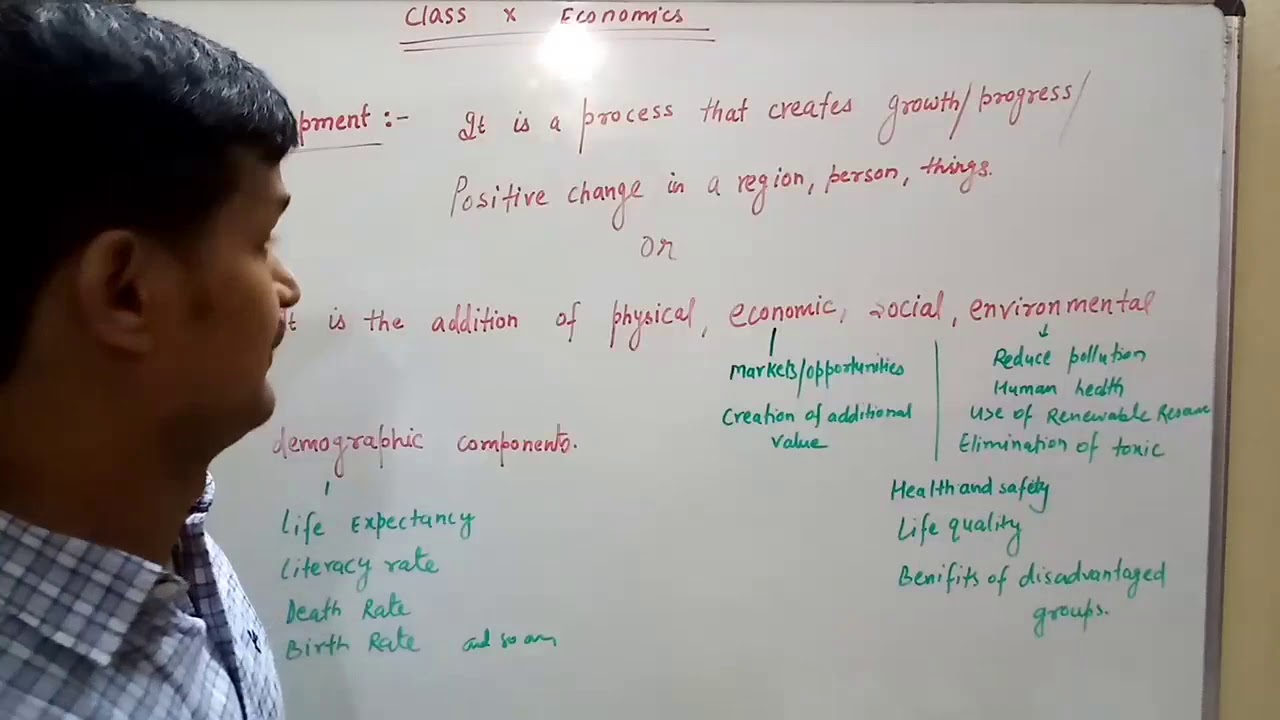 Class X Economics
pment :- It is a process that creates growth/progress/
Positive change in a region, person, things.
OR
It is the addition of physical, economic, social, environmental
Markets/opportunities
Creation of additional
value
Reduce pollution
Human health
Use of Renewable
Elimination of toxic
demographic components.
Life Expectancy
Literacy rate
Death Rate
Birth Rate and so on
Health and safety
Life quality
Benifits of disadvantaged
groups.